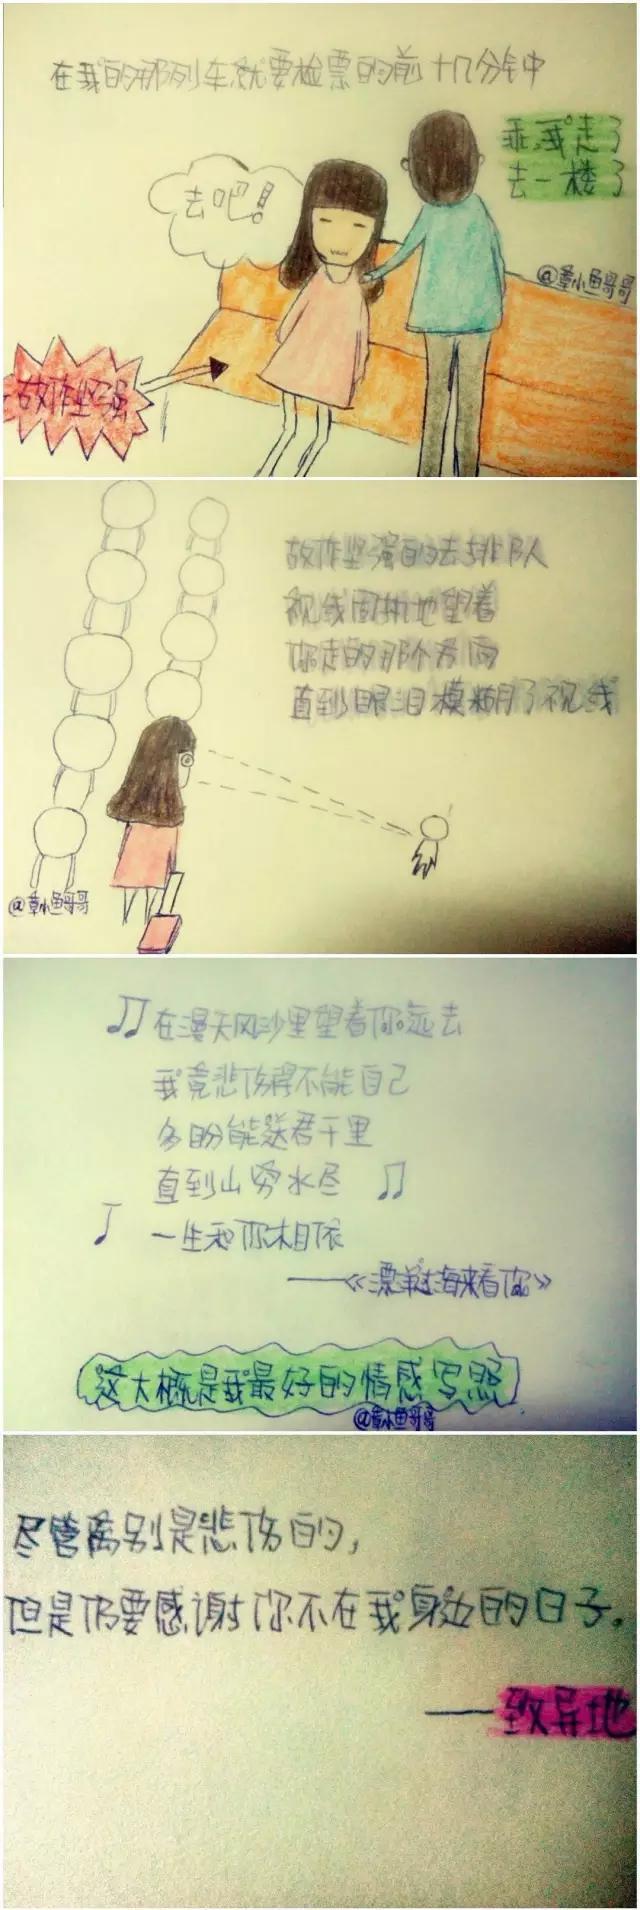 在我的那列车就要检票的前十几分钟中
乖,我走了
去一楼了
去吧!
@章小鱼哥哥
故作坚强
故作坚强的去排队
视线固执地望着
你走的那个方向
直到眼泪模糊了视线
@章小鱼哥哥
在漫天风沙里望着你远去
我竟悲伤得不能自己
多盼能送君千里
直到山穷水尽
一生和你相依
——《漂洋过海来看你》
这大概是我最好的情感写照
@章小鱼哥哥
尽管离别是悲伤的,
但是仍要感谢你不在我身边的日子。
——致异地